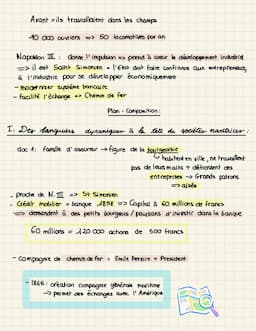 Avant = ils travaillaient dans les champs
~10 000 ouvriers => 50 locomotives par an
Napoléon III : donne l'impulsion => prend à coeur le développement industriel
=> il est Saint Simonien = l'État doit faire confiance aux entrepreneurs,
& l'industrie pour se développer économiquement
- moderniser système bancaire
- facilité l'échange => Chemin de fer
Plan - Composition :
I. Des banquiers dynamiques à la tête de sociétés novatrices :
doc 1 : famille d'assureur → figure de la bourgeoisie
↳ habitent en ville, ne travaillent
pas de leurs mains + détiennent des
entreprises → Grands patrons
=> aisés
- proche de N.III => St Simonien
- Crédit mobilier = banque 1852 => Capital à 60 millions de francs
=> demandent à des petits bourgeois / paysans d'investir dans la banque
60 millions = 120 000 actions de 500 francs
- compagnie de chemin de fer = Emile Pereire = Président
- 1866 : création compagnie générale maritime
→ permet des échanges avec l'Amérique